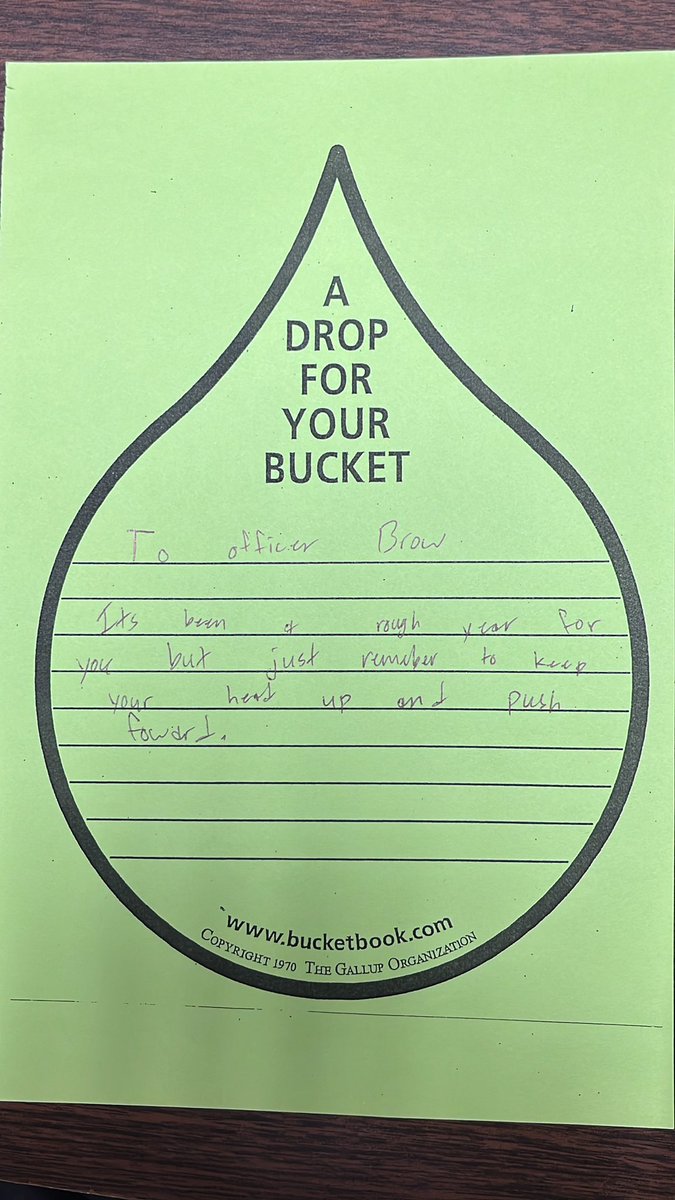 A
DROP
FOR
YOUR
BUCKET
To officer Brow
Its been a rough year for
you but just remeber to keep
your head up and push
foward.
www.bucketbook.com
COPYRIGHT 1970 THE GALLUP ORGANIZATION